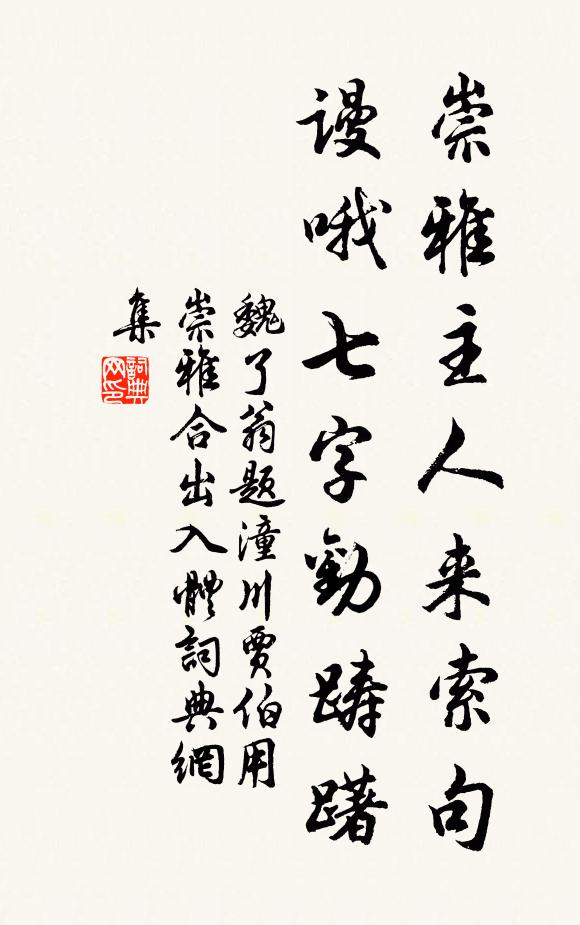 崇雅主人来索句
謾哦七字勸踌躇
魏了翁题潼川贾伯用
崇雅合出入體詞典網
集
詞典网印